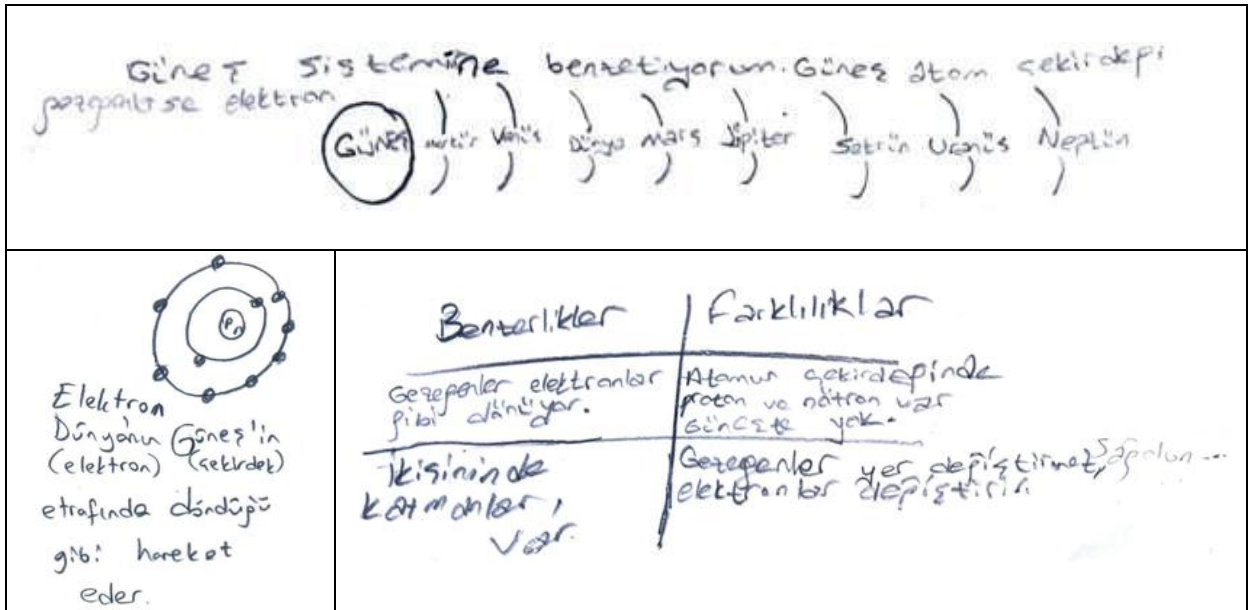 Güneş sistemine benzetiyorum. Güneş atom çekirdeği
gezegenlerse elektron
GÜNEŞ Merkür Venüs Dünya Mars Jüpiter Satrün Uranüs Neptün
Pn
Elektron
Dünyanın Güneş'in
(elektron) (çekirdek)
etrafında döndüğü
gibi hareket
eder.
Benzerlikler Farklılıklar
Gezegenler elektronlar
gibi dönüyor.
Atomun çekirdeğinde
proton ve nötron var
Güneşte yok.
İkisininde
katmanları
var.
Gezegenler yer değiştirmez, Sağolun...
elektronlar değiştirir.